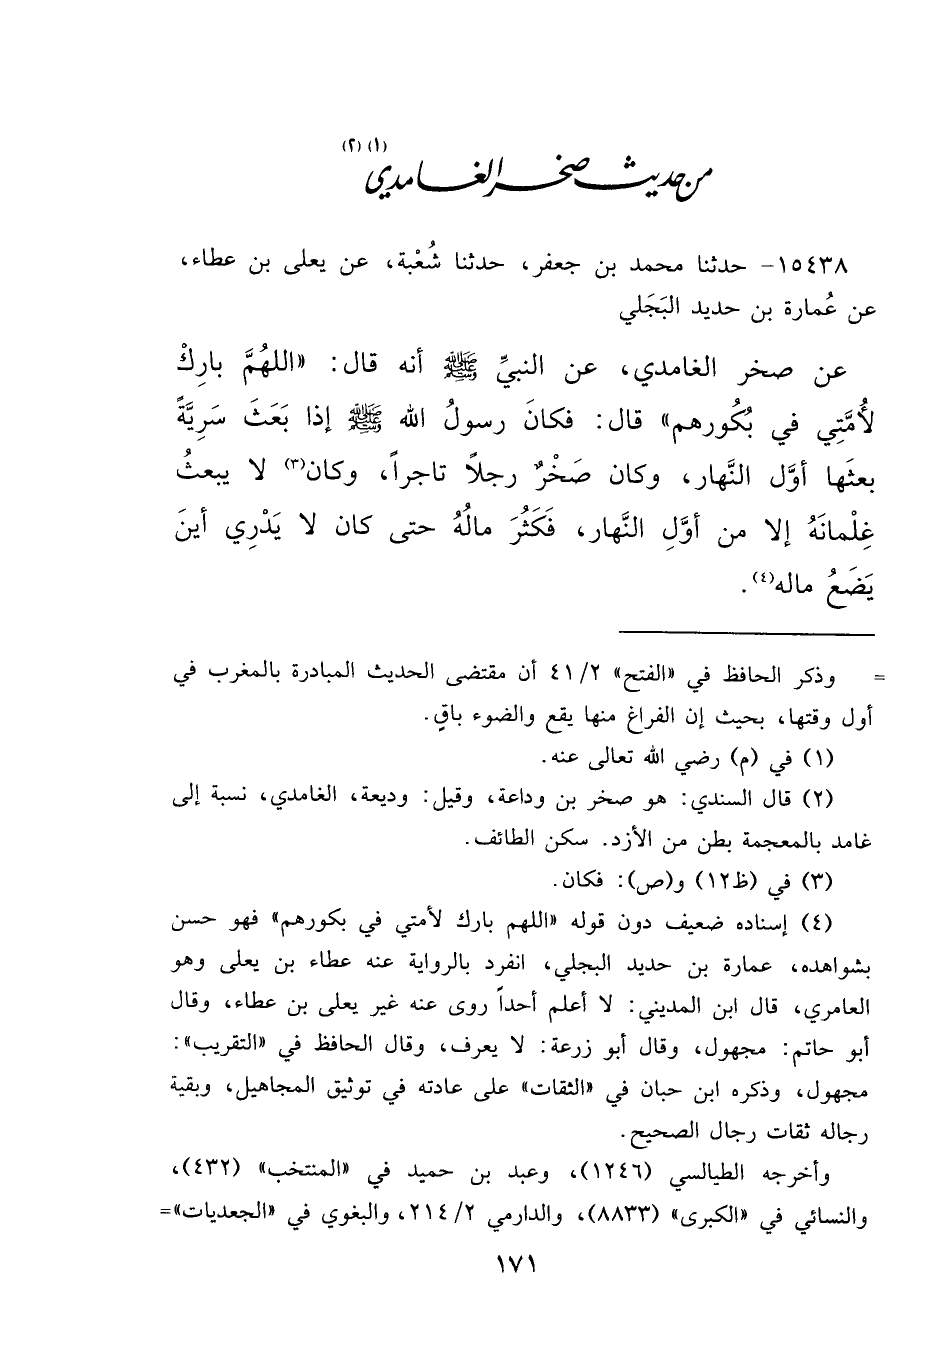 من حديث صخر الغامدي(١)(٢)
١٥٤٣٨- حدثنا محمد بن جعفر، حدثنا شُعْبة، عن يعلى بن عطاء،
عن عُمارة بن حديد البَجَلي
عن صخر الغامدي، عن النبيِّ ﷺ أنه قال: «اللهُمَّ بارِكْ
لأُمَّتِي في بُكُورهم» قال: فكانَ رسولُ الله ﷺ إذا بَعَثَ سَرِيَّةً
بعثَها أوَّل النَّهار، وكان صَخْرٌ رجلاً تاجراً، وكان(٣) لا يبعثُ
غِلْمانَهُ إلا من أوَّلِ النَّهار، فَكَثُرَ مالُهُ حتى كان لا يَدْرِي أينَ
يَضَعُ ماله(٤).
= وذكر الحافظ في «الفتح» ٤١/٢ أن مقتضى الحديث المبادرة بالمغرب في
أول وقتها، بحيث إن الفراغ منها يقع والضوء باقٍ.
(١) في (م) رضي الله تعالى عنه.
(٢) قال السندي: هو صخر بن وداعة، وقيل: وديعة، الغامدي، نسبة إلى
غامد بالمعجمة بطن من الأزد. سكن الطائف.
(٣) في (ظ١٢) و(ص): فكان.
(٤) إسناده ضعيف دون قوله «اللهم بارك لأمتي في بكورهم» فهو حسن
بشواهده، عمارة بن حديد البجلي، انفرد بالرواية عنه عطاء بن يعلى وهو
العامري، قال ابن المديني: لا أعلم أحداً روى عنه غير يعلى بن عطاء، وقال
أبو حاتم: مجهول، وقال أبو زرعة: لا يعرف، وقال الحافظ في «التقريب»:
مجهول، وذكره ابن حبان في «الثقات» على عادته في توثيق المجاهيل، وبقية
رجاله ثقات رجال الصحيح.
وأخرجه الطيالسي (١٢٤٦)، وعبد بن حميد في «المنتخب» (٤٣٢)،
والنسائي في «الكبرى» (٨٨٣٣)، والدارمي ٢١٤/٢، والبغوي في «الجعديات»=
١٧١